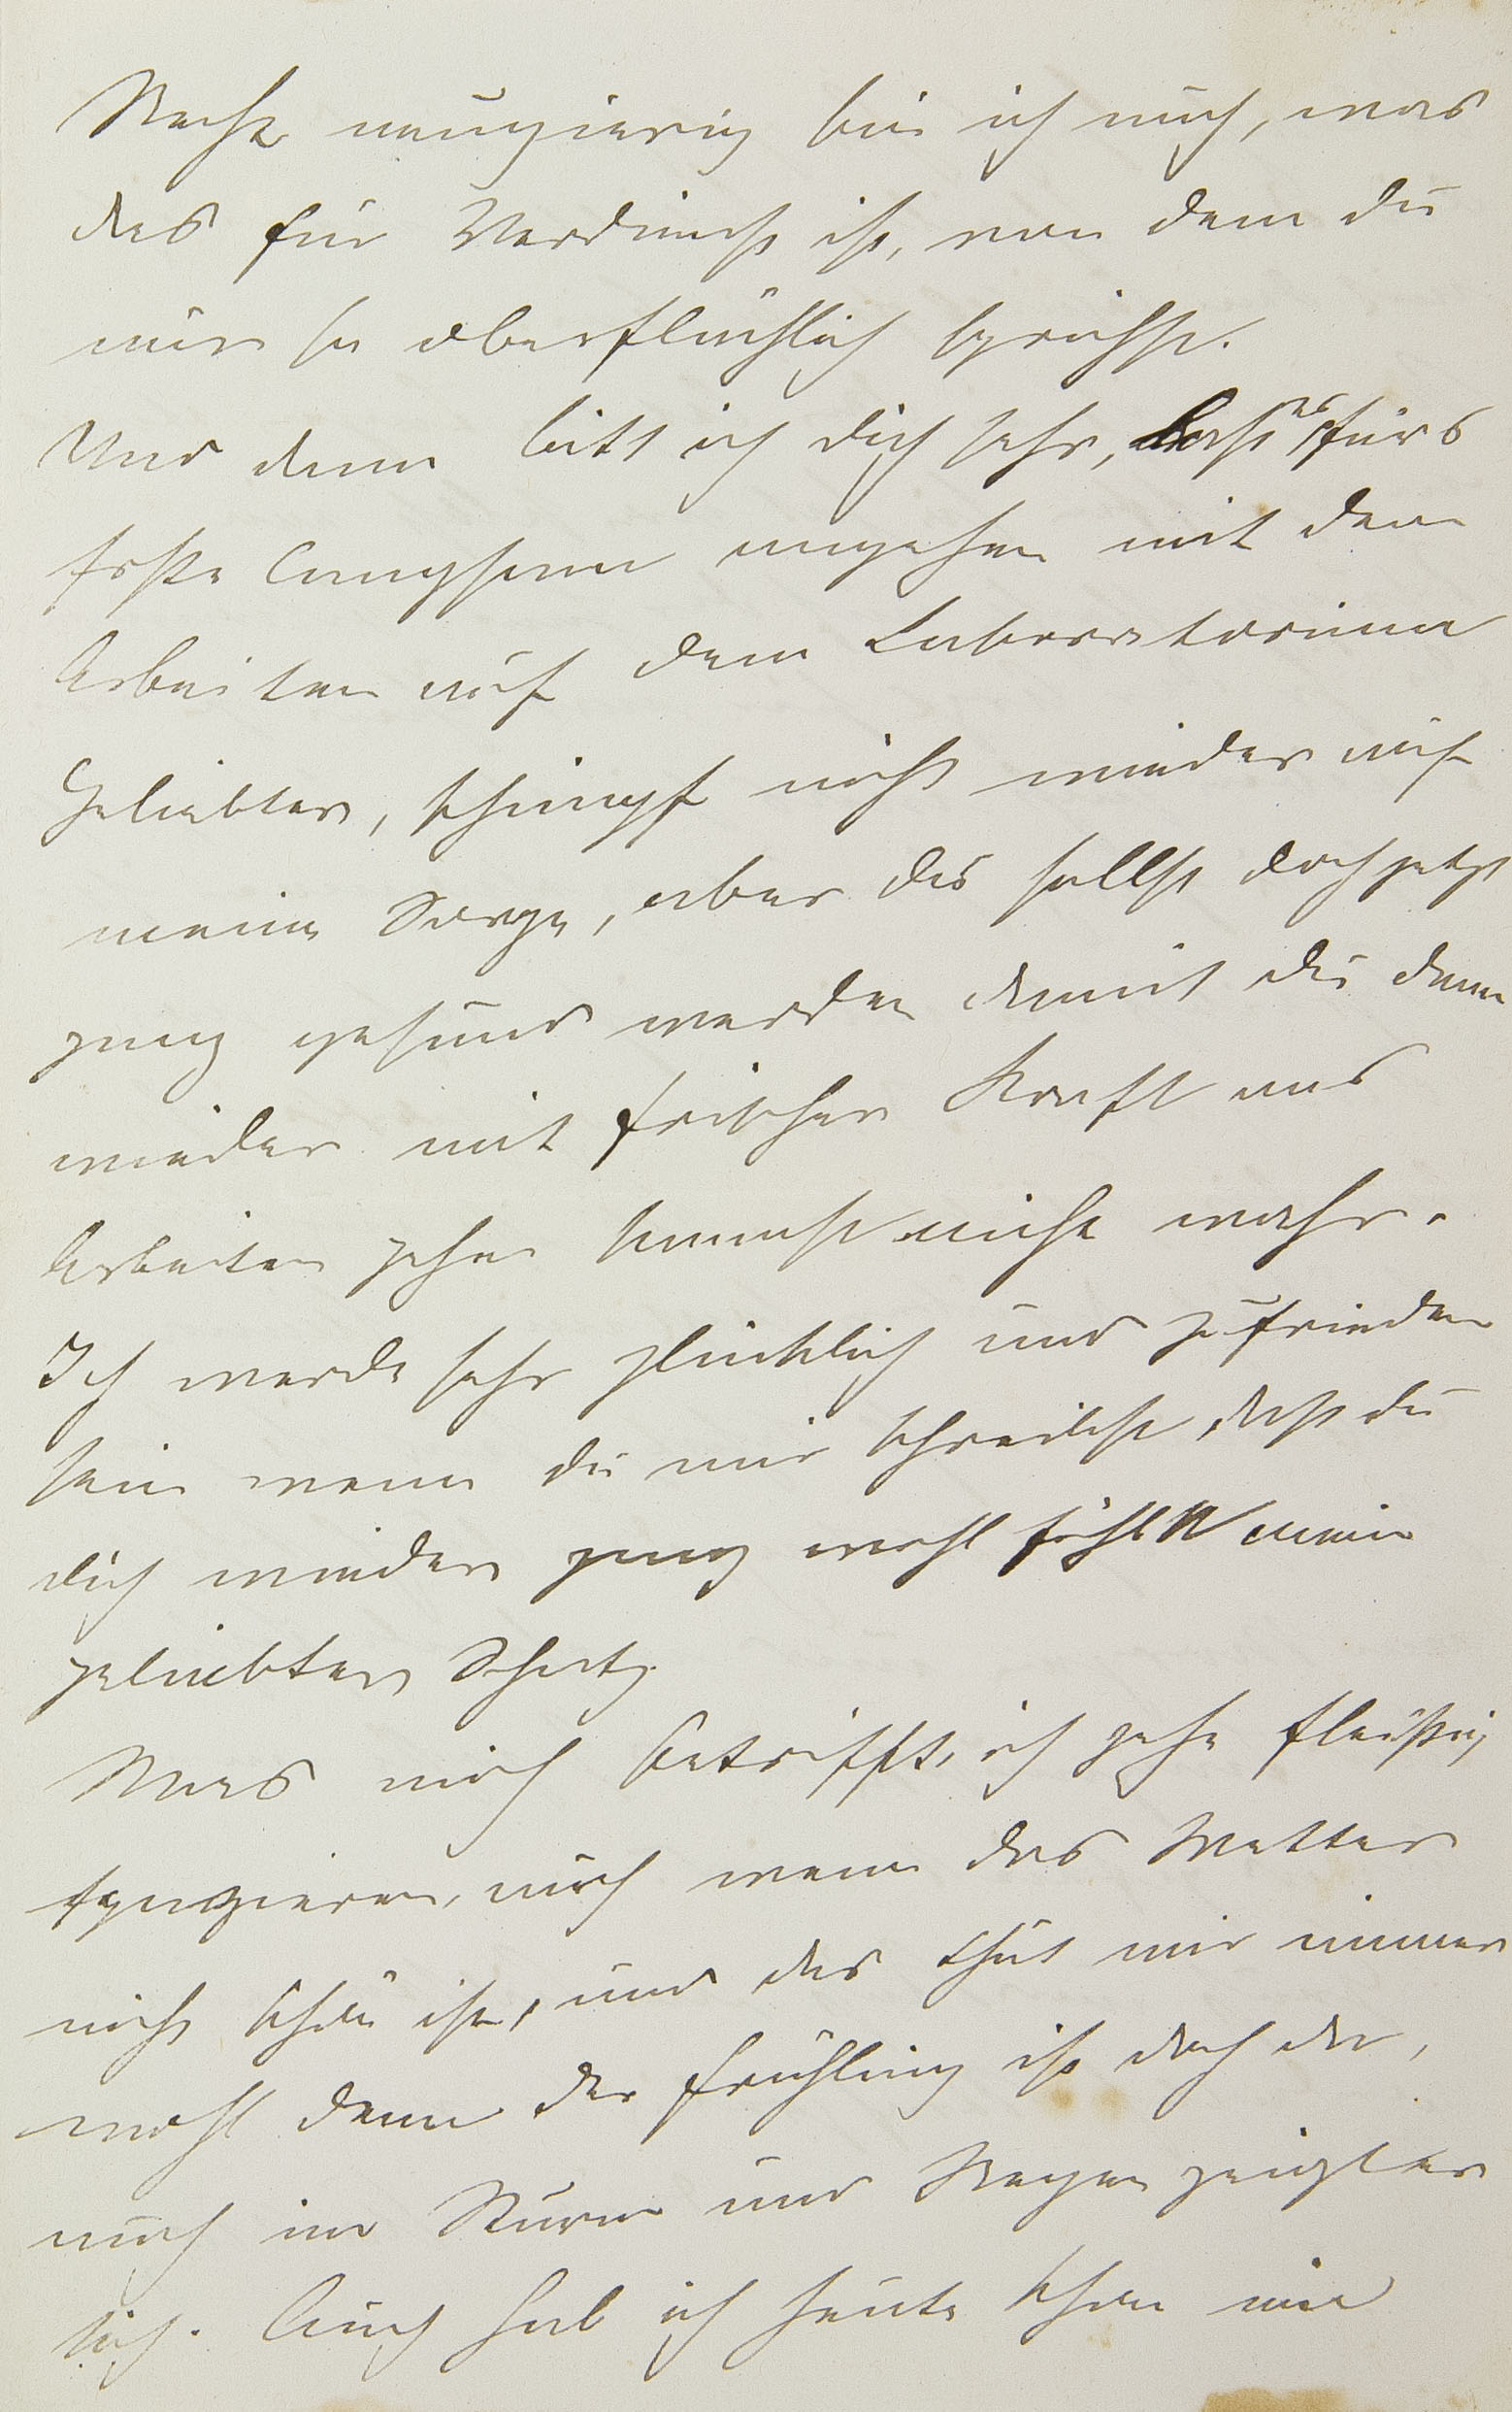 Recht neugierig bin ich auch, was
das für Verdienst ist, von dem du
nur so oberflächlich sprichst.
Und dann bitt ich dich sehr, lass es fürs
erste langsam angehen mit dem
Arbeiten auf dem Laboratorium
Geliebter, schimpf nicht wieder auf
meine Sorge, aber du sollst doch jetzt
ganz gesund werden damit du dann
wieder mit frischer Kraft ans
Arbeiten gehen kannst nicht wahr.
Ich werde sehr glücklich und zufrieden
sein wenn du mir schreibst, dass du
dich wieder ganz wohl fühlst mein
geliebter Schatz.
Was mich betrifft, ich gehe fleißig
spazieren, auch wenn das Wetter
nicht schön ist, und das thut mir immer
wohl denn der Frühling ist doch da,
auch im Sturm und Regen zeigt er
sich. Auch hab ich heute schon